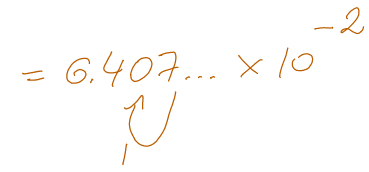 = 6.407... × 10⁻²
1